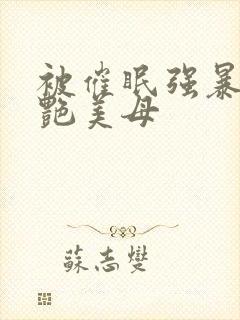 被催眠强暴
艷美母
蘇志燮